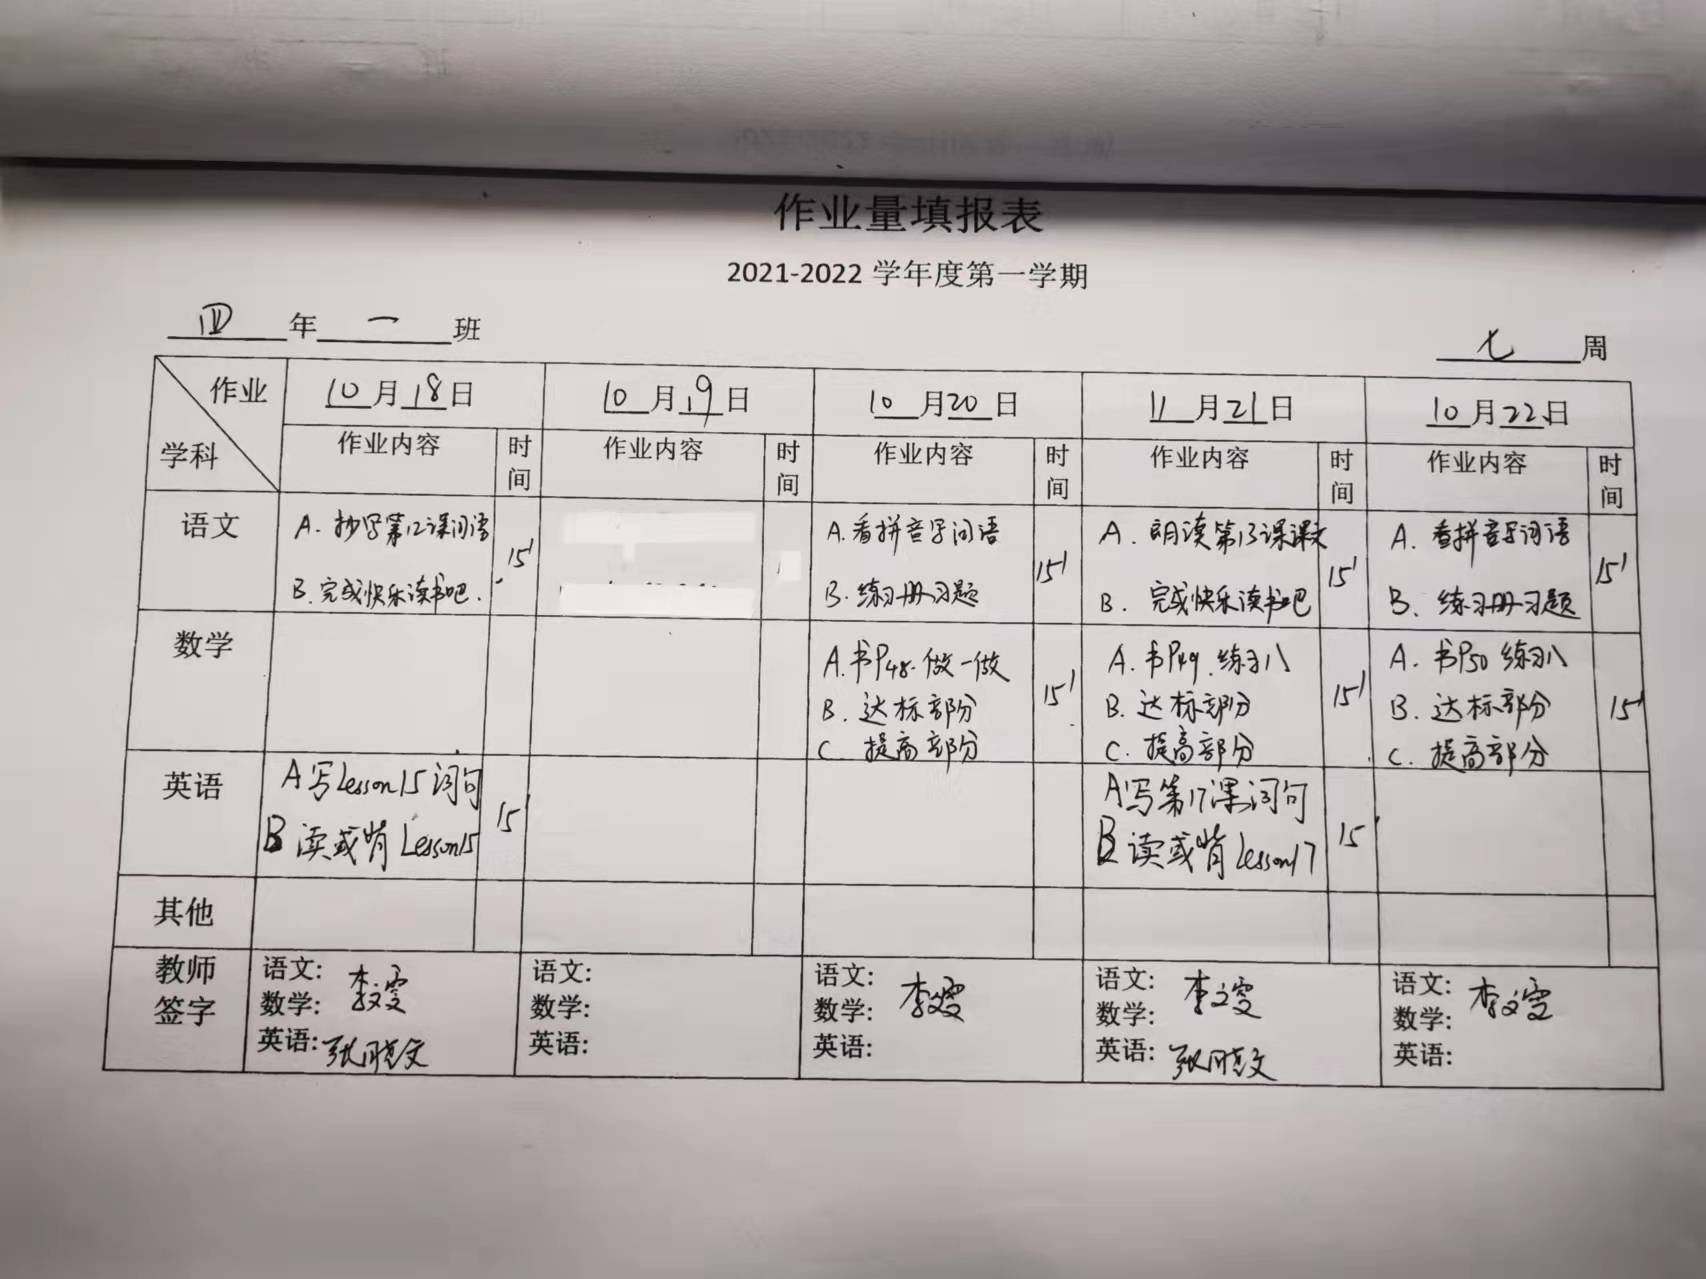 作业量填报表
2021-2022 学年度第一学期
四 年 一 班
七 周
作业
学科
10 月 18 日
10 月 19 日
10 月 20 日
11 月 21 日
10 月 22 日
作业内容 时间
作业内容 时间
作业内容 时间
作业内容 时间
作业内容 时间
语文
A. 抄写第12课词语
B. 完成快乐读书吧.
15'
A. 看拼音写词语
B. 练习册习题
15'
A. 朗读第13课课文
B. 完成快乐读书吧
15'
A. 看拼音写词语
B. 练习册习题
15'
数学
A. 书P48. 做一做
B. 达标部分
C. 提高部分
15'
A. 书P49. 练习八
B. 达标部分
C. 提高部分
15'
A. 书P50 练习八
B. 达标部分
C. 提高部分
15'
英语
A写Lesson15词句
B 读或背Lesson15
15'
A写第17课词句
B 读或背Lesson17
15'
其他
教师
签字
语文: 李文雯
数学:
英语: 张晓文
语文:
数学:
英语:
语文: 李文雯
数学:
英语:
语文: 李文雯
数学:
英语: 张晓文
语文: 李文雯
数学:
英语: